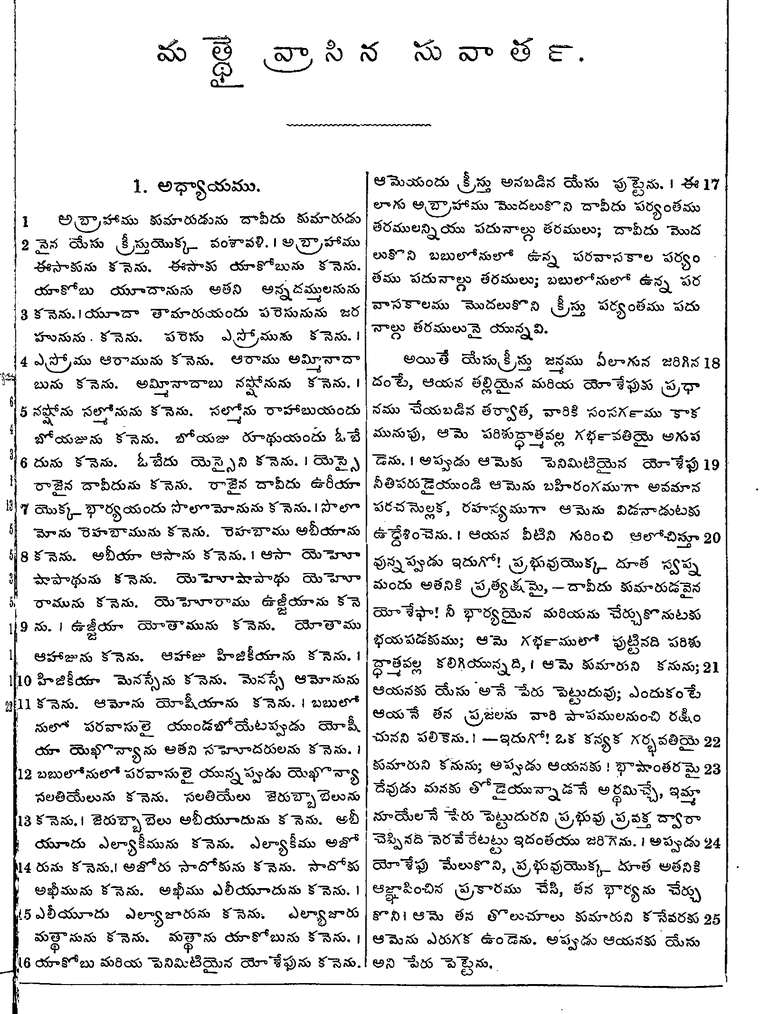 మత్థై వ్రాసిన సువార్త.
1. అధ్యాయము.
1 అబ్రాహాము కుమారుడును దావీదు కుమారుడు
2 నైన యేసు క్రీస్తుయొక్క వంశావళి. । అబ్రాహాము
ఈసాకును కనెను. ఈసాకు యాకోబును కనెను.
యాకోబు యూదానును అతని అన్నదమ్ములనును
3 కనెను. । యూదా తామారుయందు పరెసునును జర
హునును కనెను. పరెసు ఎస్రోమును కనెను. ।
4 ఎస్రోము ఆరామును కనెను. ఆరాము అమ్మినాదా
బును కనెను. అమ్మినాదాబు నహ్షోనును కనెను. ।
5 నహ్షోను సల్మోనును కనెను. సల్మోను రాహాబుయందు
బోయజును కనెను. బోయజు రూథుయందు ఓబే
6 దును కనెను. ఓబేదు యెస్సైని కనెను. । యెస్సై
రాజైన దావీదును కనెను. రాజైన దావీదు ఉరీయా
7 యొక్క భార్యయందు సొలొమోనును కనెను. । సొలొ
మోను రెహబామును కనెను. రెహబాము అబీయాను
8 కనెను. అబీయా ఆసాను కనెను. । ఆసా యెహో
షాపాథును కనెను. యెహోషాపాథు యెహో
రామును కనెను. యెహోరాము ఉజ్జీయాను కనె
9 ను. । ఉజ్జీయా యోతామును కనెను. యోతాము
ఆహాజును కనెను. ఆహాజు హిజికీయాను కనెను. ।
10 హిజికీయా మెనస్సేను కనెను. మెనస్సే ఆమోనును
11 కనెను. ఆమోను యోషీయాను కనెను. । బబులో
నులో పరవాసులై యుండబోయేటప్పడు యోషీ
యా యెఖొన్యాను అతని సహోదరులను కనెను. ।
12 బబులోనులో పరవాసులై యున్నప్పడు యెఖొన్యా
సలతియేలును కనెను. సలతియేలు జెరుబ్బాబెలును
13 కనెను. । జెరుబ్బాబెలు అబీయూదును కనెను. అబీ
యూదు ఎల్యాకీమును కనెను. ఎల్యాకీము అజో
14 రును కనెను. । అజోరు సాదోకును కనెను. సాదోకు
అఖీమును కనెను. అఖీము ఎలీయూదును కనెను. ।
15 ఎలీయూదు ఎల్యాజారును కనెను. ఎల్యాజారు
మత్థానును కనెను. మత్థాను యాకోబును కనెను. ।
16 యాకోబు మరియ పెనిమిటియైన యోశేఫును కనెను.
ఆమెయందు క్రీస్తు అనబడిన యేసు పుట్టెను. । ఈ 17
లాగు అబ్రాహాము మొదలుకొని దావీదు పర్యంతము
తరములన్నియు పదునాల్గు తరములు; దావీదు మొద
లుకొని బబులోనులో ఉన్న పరవాసకాల పర్యం
తము పదునాల్గు తరములు; బబులోనులో ఉన్న పర
వాసకాలము మొదలుకొని క్రీస్తు పర్యంతము పదు
నాల్గు తరములునై యున్నవి.
అయితే యేసుక్రీస్తు జన్మము యీలాగున జరిగిన 18
దంటే, ఆయన తల్లియైన మరియ యోశేఫుకు ప్రధా
నము చేయబడిన తర్వాత, వారికి సంసర్గము కాక
మునుపు, ఆమె పరిశుద్ధాత్మవల్ల గర్భవతియై అగుప
డెను. । అప్పుడు ఆమెకు పెనిమిటియైన యోశేఫు 19
నీతిపరుడైయుండి ఆమెను బహిరంగముగా అవమాన
పరచనొల్లక, రహస్యముగా ఆమెను విడనాడుటకు
ఉద్దేశించెను. । ఆయన వీటిని గురించి ఆలోచిస్తూ 20
వున్నప్పుడు ఇదుగో! ప్రభువుయొక్క దూత స్వప్న
మందు అతనికి ప్రత్యక్షమై, — దావీదు కుమారుడవైన
యోశేఫా! నీ భార్యయైన మరియను చేర్చుకొనుటకు
భయపడకుము; ఆమె గర్భములో పుట్టినది పరిశు
ద్ధాత్మవల్ల కలిగియున్నది, । ఆమె కుమారుని కనును; 21
ఆయనకు యేసు అనే పేరు పెట్టుదువు; ఎందుకంటే
ఆయనే తన ప్రజలను వారి పాపములనుంచి రక్షిం
చునని పలికెను. । —ఇదుగో! ఒక కన్యక గర్భవతియై 22
కుమారుని కనును; అప్పుడు ఆయనకు ! భాషాంతరమై 23
దేవుడు మనకు తోడైయున్నాడనే అర్థమిచ్చే, ఇమ్మా
నూయేలనే పేరు పెట్టుదురని ప్రభువు ప్రవక్త ద్వారా
చెప్పినది నెరవేరేటట్టు ఇదంతయు జరిగెను. । అప్పుడు 24
యోశేఫు మేలుకొని, ప్రభువుయొక్క దూత అతనికి
ఆజ్ఞాపించిన ప్రకారము చేసి, తన భార్యను చేర్చు
కొని । ఆమె తన తొలుచూలు కుమారుని కనేవరకు 25
ఆమెను ఎరుగక ఉండెను. అప్పుడు ఆయనకు యేసు
అని పేరు పెట్టెను.